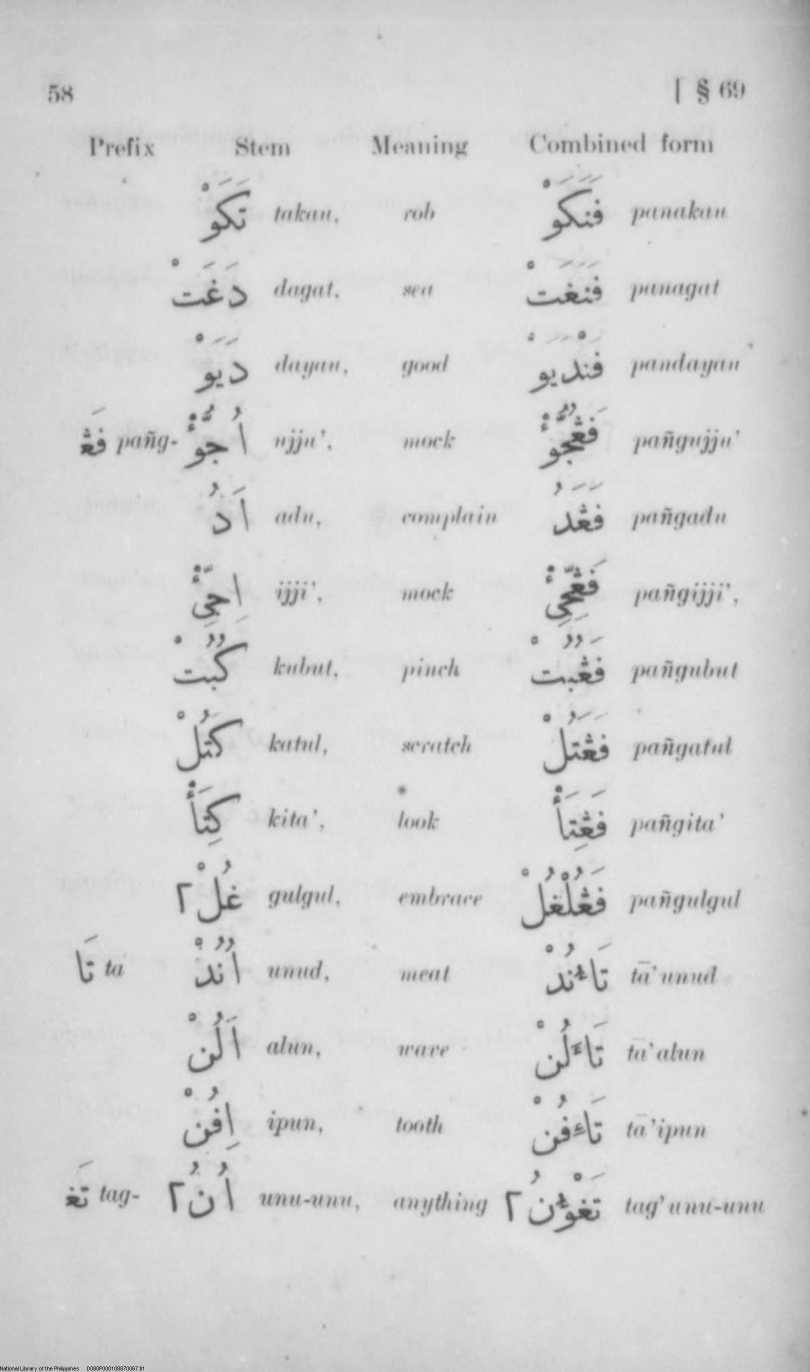 58 [ § 69
Prefix Stem Meaning Combined form
تَكَوْ takau, rob فَنَكَوْ panakau
دَغَتْ dagat, sea فَنَغَتْ panagat
دَيَوْ dayau, good فَنْدَيَوْ pandayau
فَڠْ pañg- اُجُّؤْ ujju', mock فَڠُجُّؤْ pañgujju'
اَدُ adu, complain فَڠَدُ pañgadu
اِجِّىْٔ ijji', mock فَڠِجِّىْٔ pañgijji',
كُبُتْ kubut, pinch فَڠُبُتْ pañgubut
كَتُلْ katul, scratch فَڠَتُلْ pañgatul
كِتَأْ kita', look فَڠِتَأْ pañgita'
غُلْ٢ gulgul, embrace فَڠُلْغُلْ pañgulgul
تَا ta اُنُدْ unud, meat تَاءُنُدْ tā'unud
اَلُنْ alun, wave تَاءَلُنْ tā'alun
اِفُنْ ipun, tooth تَاءِفُنْ tā'ipun
تَغ tag- اُنُ٢ unu-unu, anything تَغْؤُنُ٢ tag'unu-unu
National Library of the Philippines